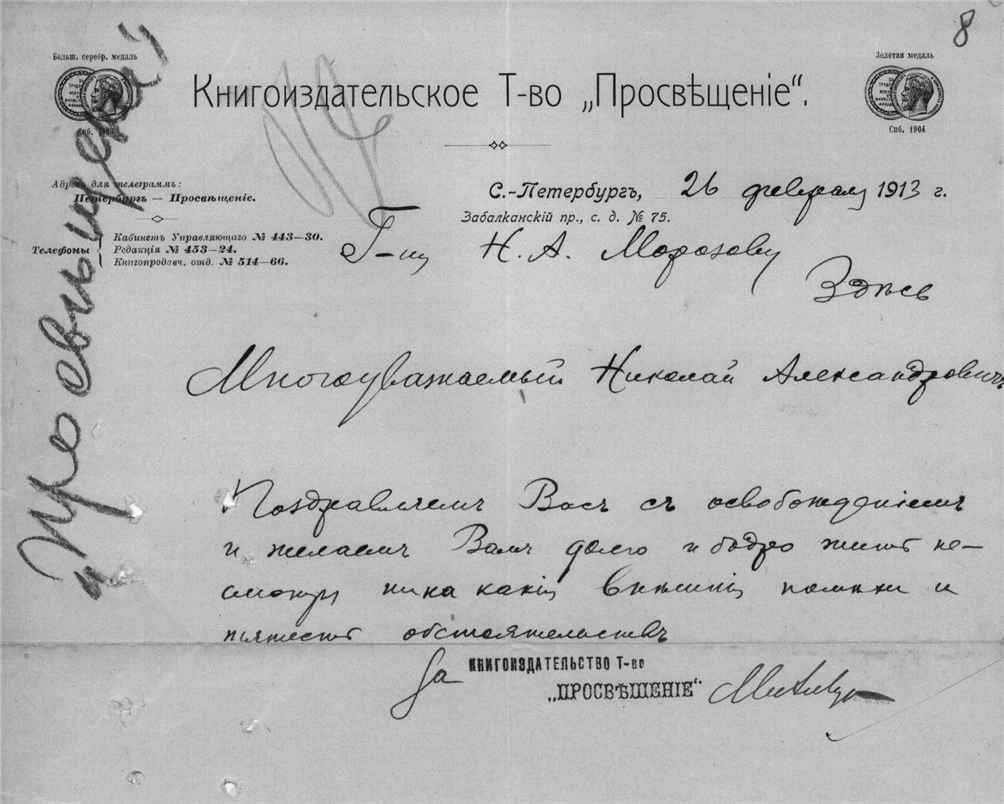 8
Больш. серебр. медаль
Золотая медаль
Книгоиздательское Т-во „Просвѣщеніе“.
Спб. 1904
Адресъ для телеграммъ:
Петербургъ — Просвѣщеніе.
С.-Петербургъ, 26 февраля 1913 г.
Забалканскій пр., с. д. № 75.
Телефоны
Кабинетъ Управляющаго № 443—30.
Редакція № 453—24.
Книгопродавч. отд. № 514—66.
Г-ну Н. А. Морозову
Здѣсь
Многоуважаемый Николай Александровичъ
Поздравляемъ Васъ съ освобожденіемъ
и желаемъ Вамъ долго и бодро жить не-
смотря ни на какія внѣшнія помѣхи и
тяжесть обстоятельствъ
За КНИГОИЗДАТЕЛЬСТВО Т-во
„ПРОСВѢЩЕНІЕ“